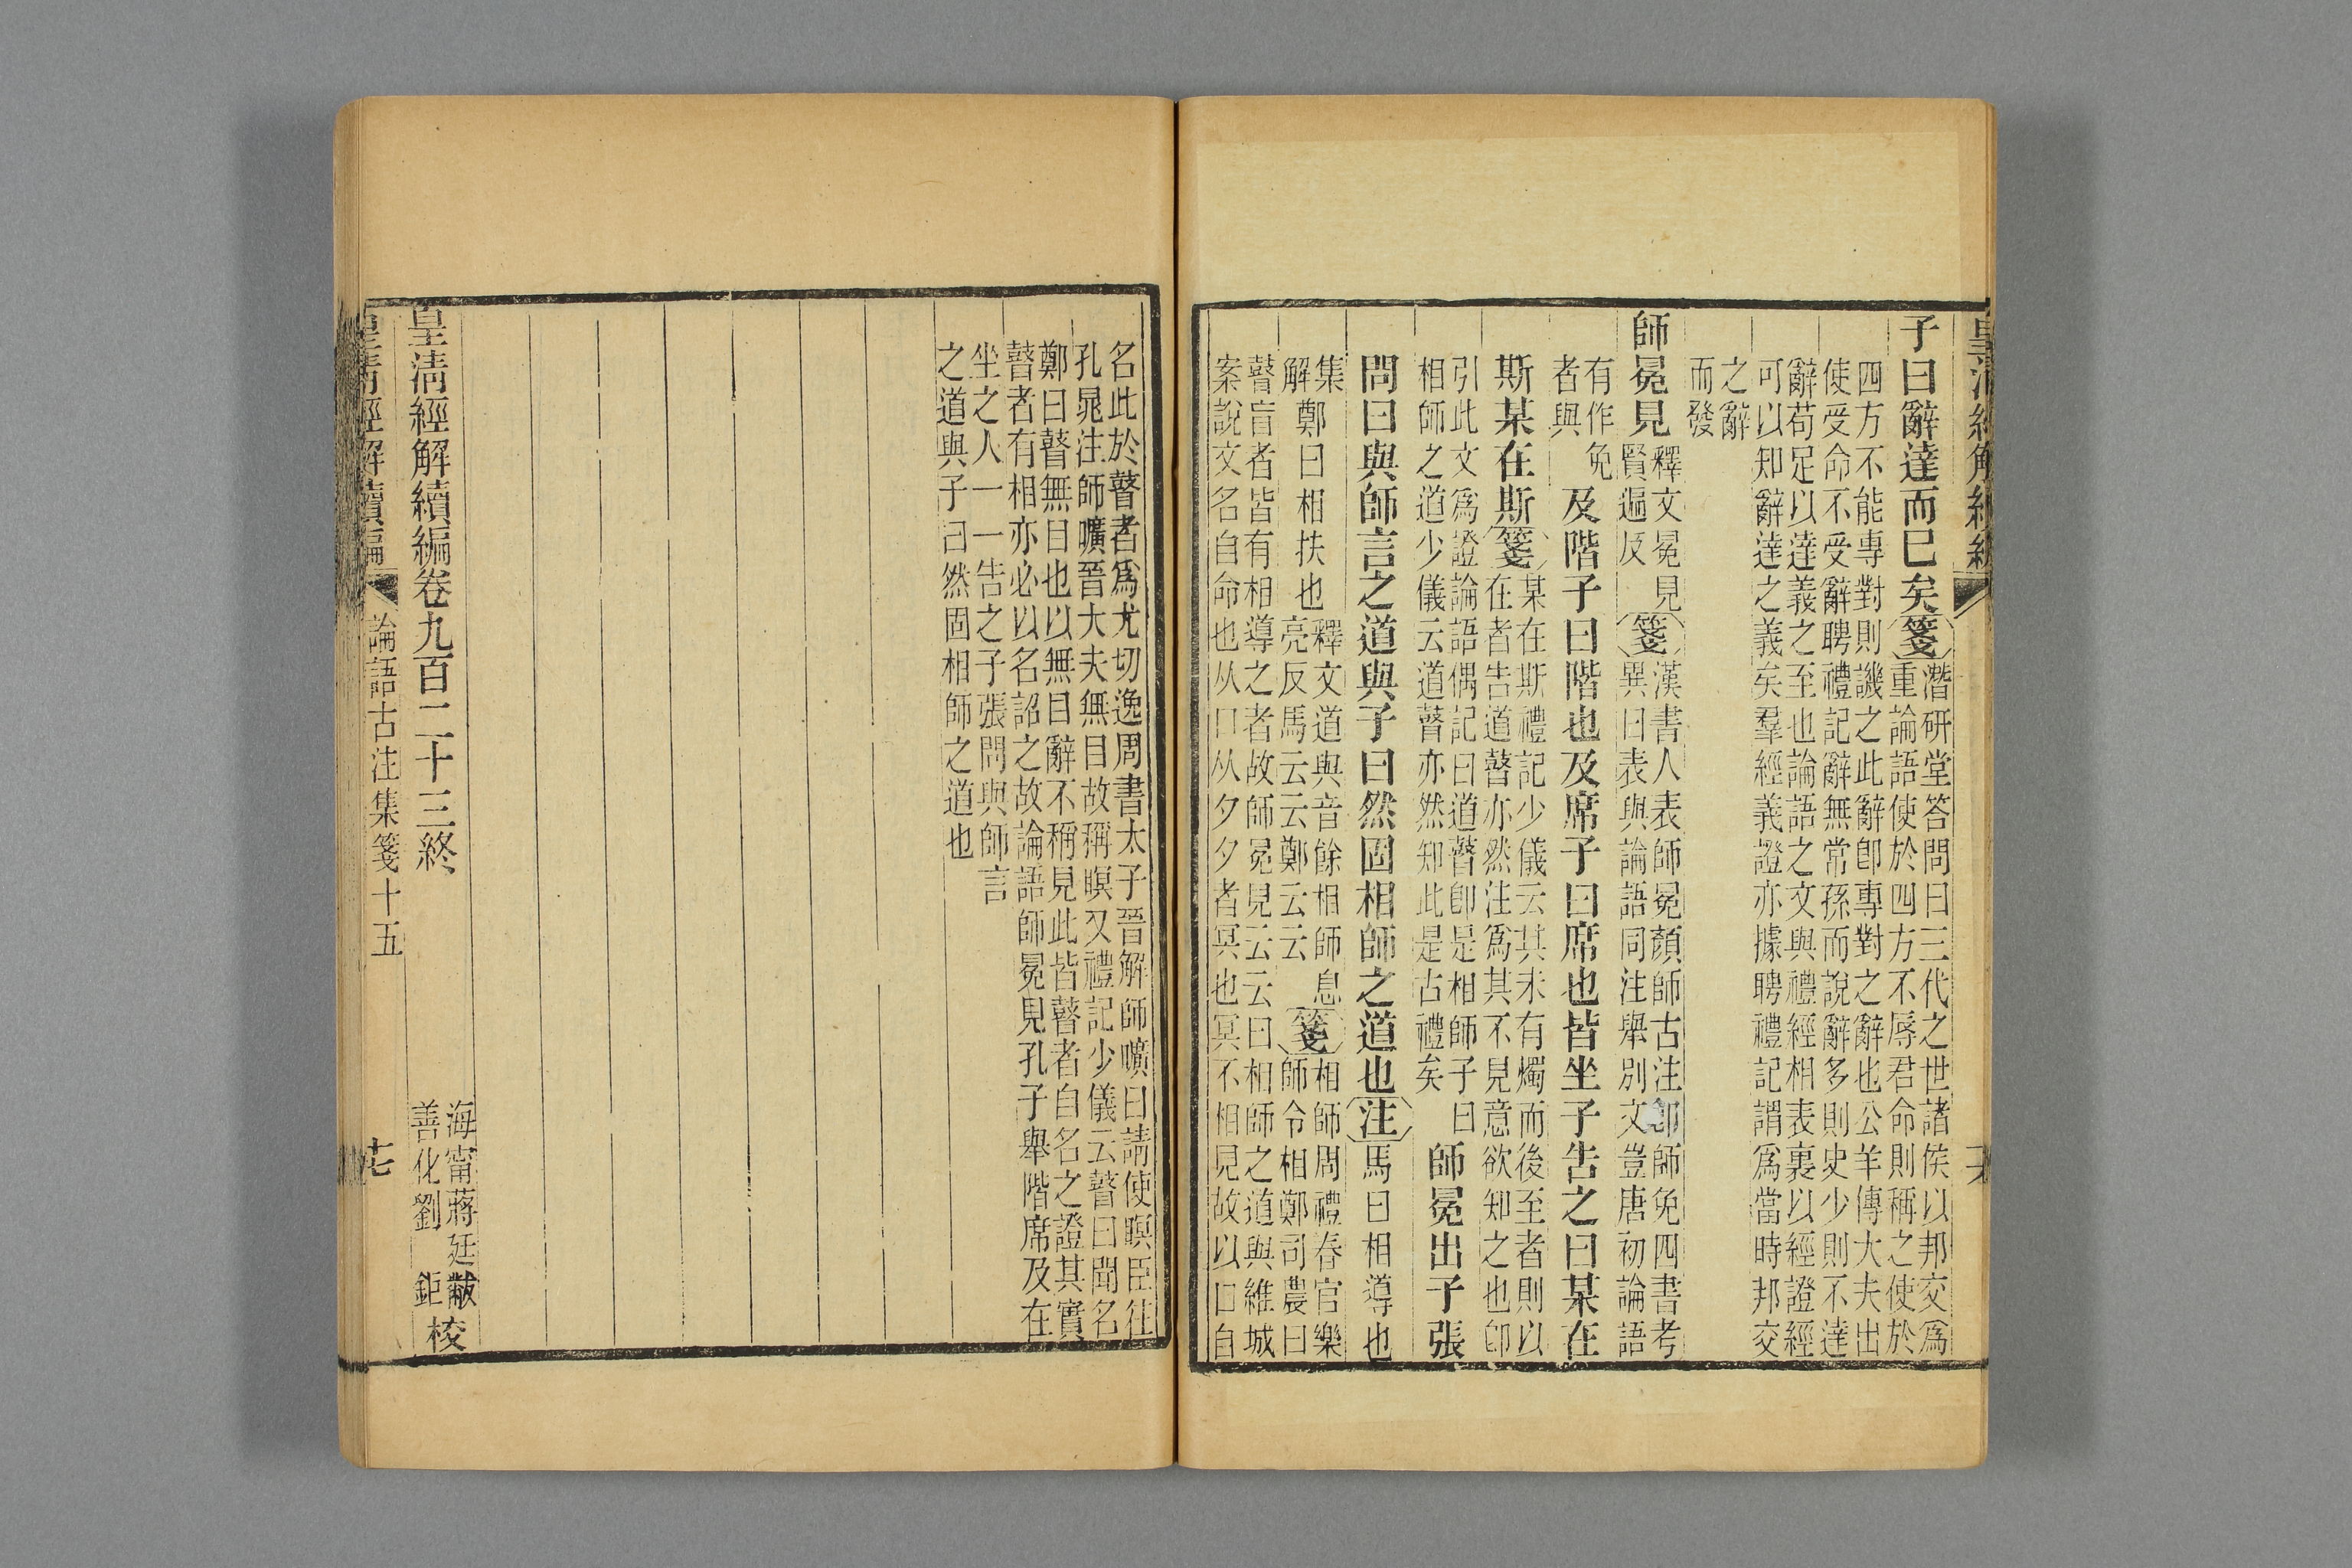 皇清經解續編
子曰辭達而已矣箋潛研堂答問曰三代之世諸侯以邦交爲
重論語使於四方不辱君命則稱之使於
四方不能專對則譏之此辭卽專對之辭也公羊傳大夫出
使受命不受辭聘禮記辭無常孫而說辭多則史少則不達
辭苟足以達義之至也論語之文與禮經相表裏以經證經
可以知辭達之義矣羣經義證亦據聘禮記謂爲當時邦交
之辭
而發
師冕見釋文冕見
賢遍反箋漢書人表師冕顏師古注卽師免四書考
異曰表與論語同注舉別文豈唐初論語
有作免
者與及階子曰階也及席子曰席也皆坐子告之曰某在
斯某在斯箋某在斯禮記少儀云其未有燭而後至者則以
在者告道瞽亦然注爲其不見意欲知之也卽
引此文爲證論語偶記曰道瞽卽是相師子曰
相師之道少儀云道瞽亦然知此是古禮矣師冕出子張
問曰與師言之道與子曰然固相師之道也注馬曰相導也
集解鄭曰相扶也釋文道與音餘相師息
亮反馬云云鄭云云箋相師周禮春官樂
師令相鄭司農曰
瞽盲者皆有相導之者故師冕見云云曰相師之道與維城
案說文名自命也从口从夕夕者冥也冥不相見故以口自
名此於瞽者爲尤切逸周書太子晉解師曠曰請使瞑臣往
孔晁注師曠晉大夫無目故稱瞑又禮記少儀云瞽曰聞名
鄭曰瞽無目也以無目辭不稱見此皆瞽者自名之證其實
瞽者有相亦必以名詔之故論語師冕見孔子舉階席及在
坐之人一一告之子張問與師言
之道與子曰然固相師之道也
皇清經解續編卷九百二十三終
海甯蔣廷黻
善化劉鉅校
皇清經解續編 論語古注集箋十五 十七